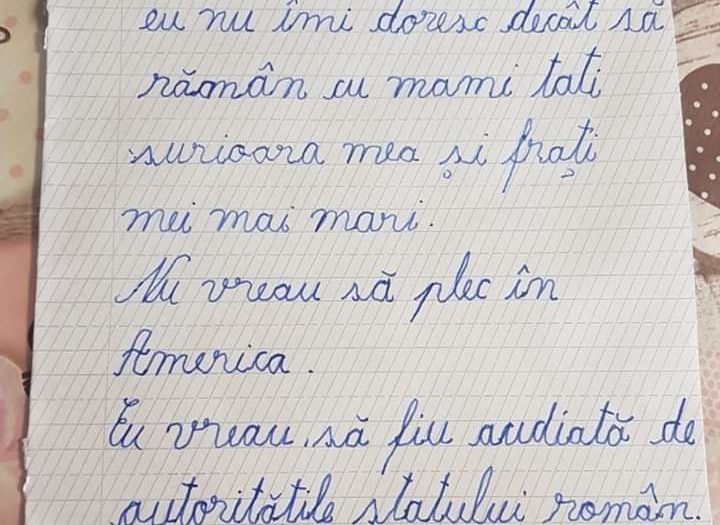 eu nu îmi doresc decât să
rămân cu mami tati
surioara mea și frați
mei mai mari.
Nu vreau să plec în
America.
Eu vreau să fiu audiată de
autoritățile statului român.